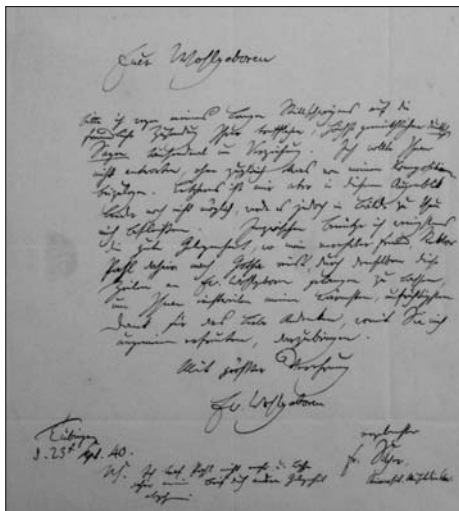 Euer Wohlgeboren
bitte ich wegen meines langen Stillschweigens auf die
freundliche Zusendung Ihrer trefflichen, höchst gemüthlichen
Sagen tausendmal um Verzeihung. Ich wollte Ihnen
nicht antworten, ohne zugleich etwas von meinen Kompositionen
beizulegen. Letzteres ist mir aber in diesem Augenblick
leider noch nicht möglich, werde es jedoch in Bälde zu thun
nicht. Inzwischen benütze ich wenigstens
die gute Gelegenheit, wo mein verehrter Freund, Rektor
Pahl dahier nach Gotha reist, durch denselben diese
Zeilen an Ew. Wohlgeboren gelangen zu lassen,
um Ihnen einstweilen meinen wärmsten, aufrichtigsten
Dank für das liebe Andenken, womit Sie mich
ungemein erfreuten, darzubringen.
Mit größter Verehrung
Ew. Wohlgeboren
ergebenster
Tübingen
d. 23t Spt. 40.
Fr.
NS. Ich